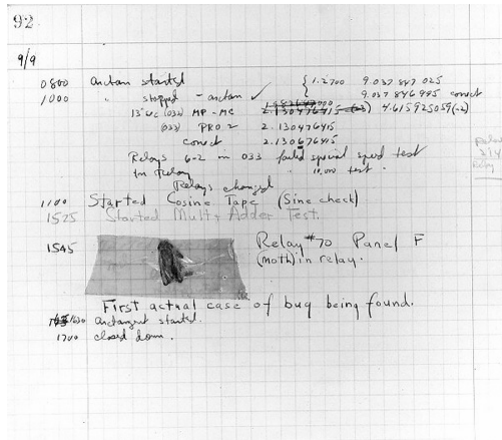 92
9/9
0800 Arctan started { 1.2700 9.037 847 025
1000 " stopped - arctan ✓ 9.037 846 995 correct
13"UC (032) MP - MC 2.130476415 4.615925059(-2)
(033) PRO 2 2.130476415
correct 2.130676415
Relays 6-2 in 033 failed special speed test
in Relay 10,000 test.
Relays changed
1100 Started Cosine Tape (Sine check)
1525 Started Mult + Adder Test.
1545 Relay #70 Panel F
(moth) in relay.
First actual case of bug being found.
1630 arctangent started.
1700 closed down.
Relay